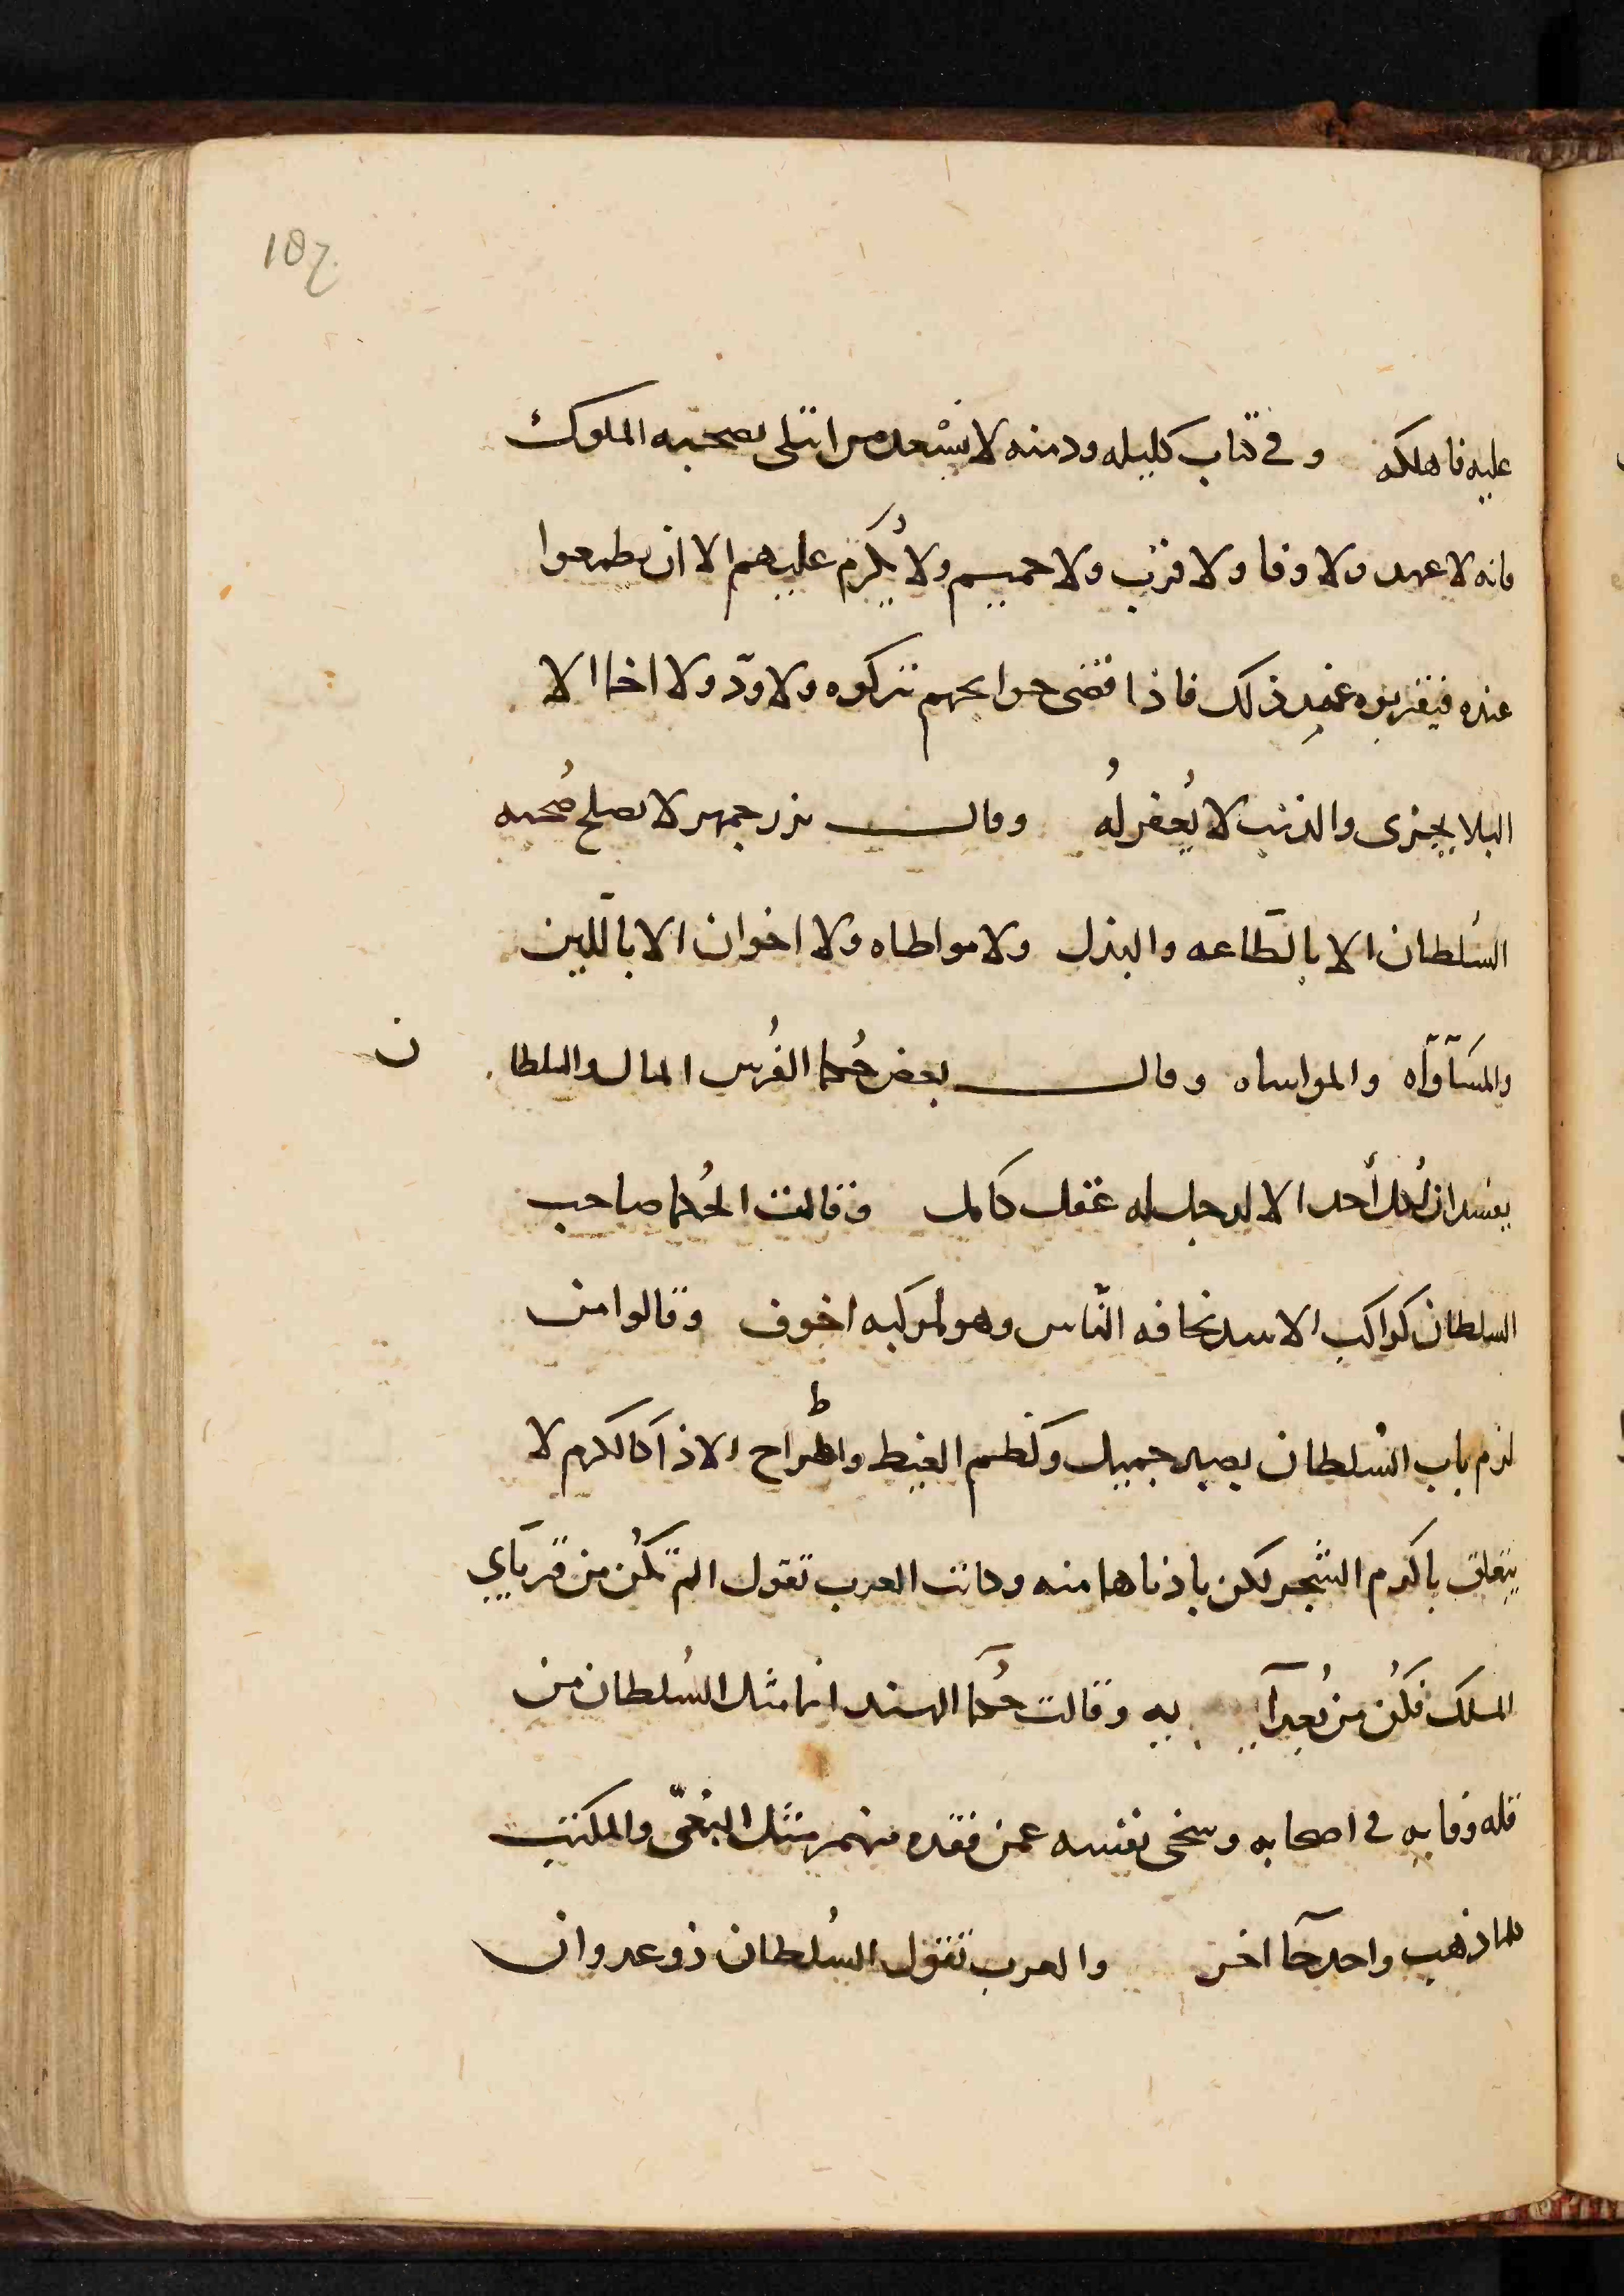 187
عليه فاهلكه وفي كتاب كليله ودمنه لا يسْعد من ابتلي بصحبه الملوك
فانه لا عهد ولا وفا ولا قرب ولا حميم ولا يُكرم عليهم الا ان يطمعوا
عنده فيقربوه عند ذلك فاذا قضى حوايجهم تركوه ولا ودّ ولا اخا الا
البلا يجزى والذنب لا يُغفر لهُ وقال بزرجمهر لا يصلح صُحبه
السُلطان الا بالطّاعه والبذل ولا مواطاه ولا اخوان الا باللّين
والمسآوآه والمواساه وقال بعض حُكما الفُرس المال والسلطان
يفسدان كُل أحد الا لرجل له عقل كامل وقالت الحُكما صاحب
السلطان كراكب الاسد تخافه النّاس وهو لمركبه اخوف وقالوا من
لزم باب السُلطان بصبر جميل وكظم الغيظ واطراح الاذا كالكرم لا
يتعلق باكرم الشّجر لكن بادناها منه وكانت العرب تقول الم تكُن من قربآي
الملك فكُن من بُعدآ يه وقالت حُكمآ الهند انما مثل السُلطان من
قله وفايه في اصحابه وسخى نفسه عمن فقده منهم مثل البغيّ والمكتب
كلما ذهب واحد جآ اخر والعرب تقول السُلطان ذو عدوان